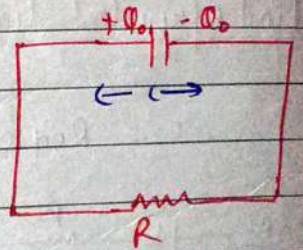 +Q₀ -Q₀
R